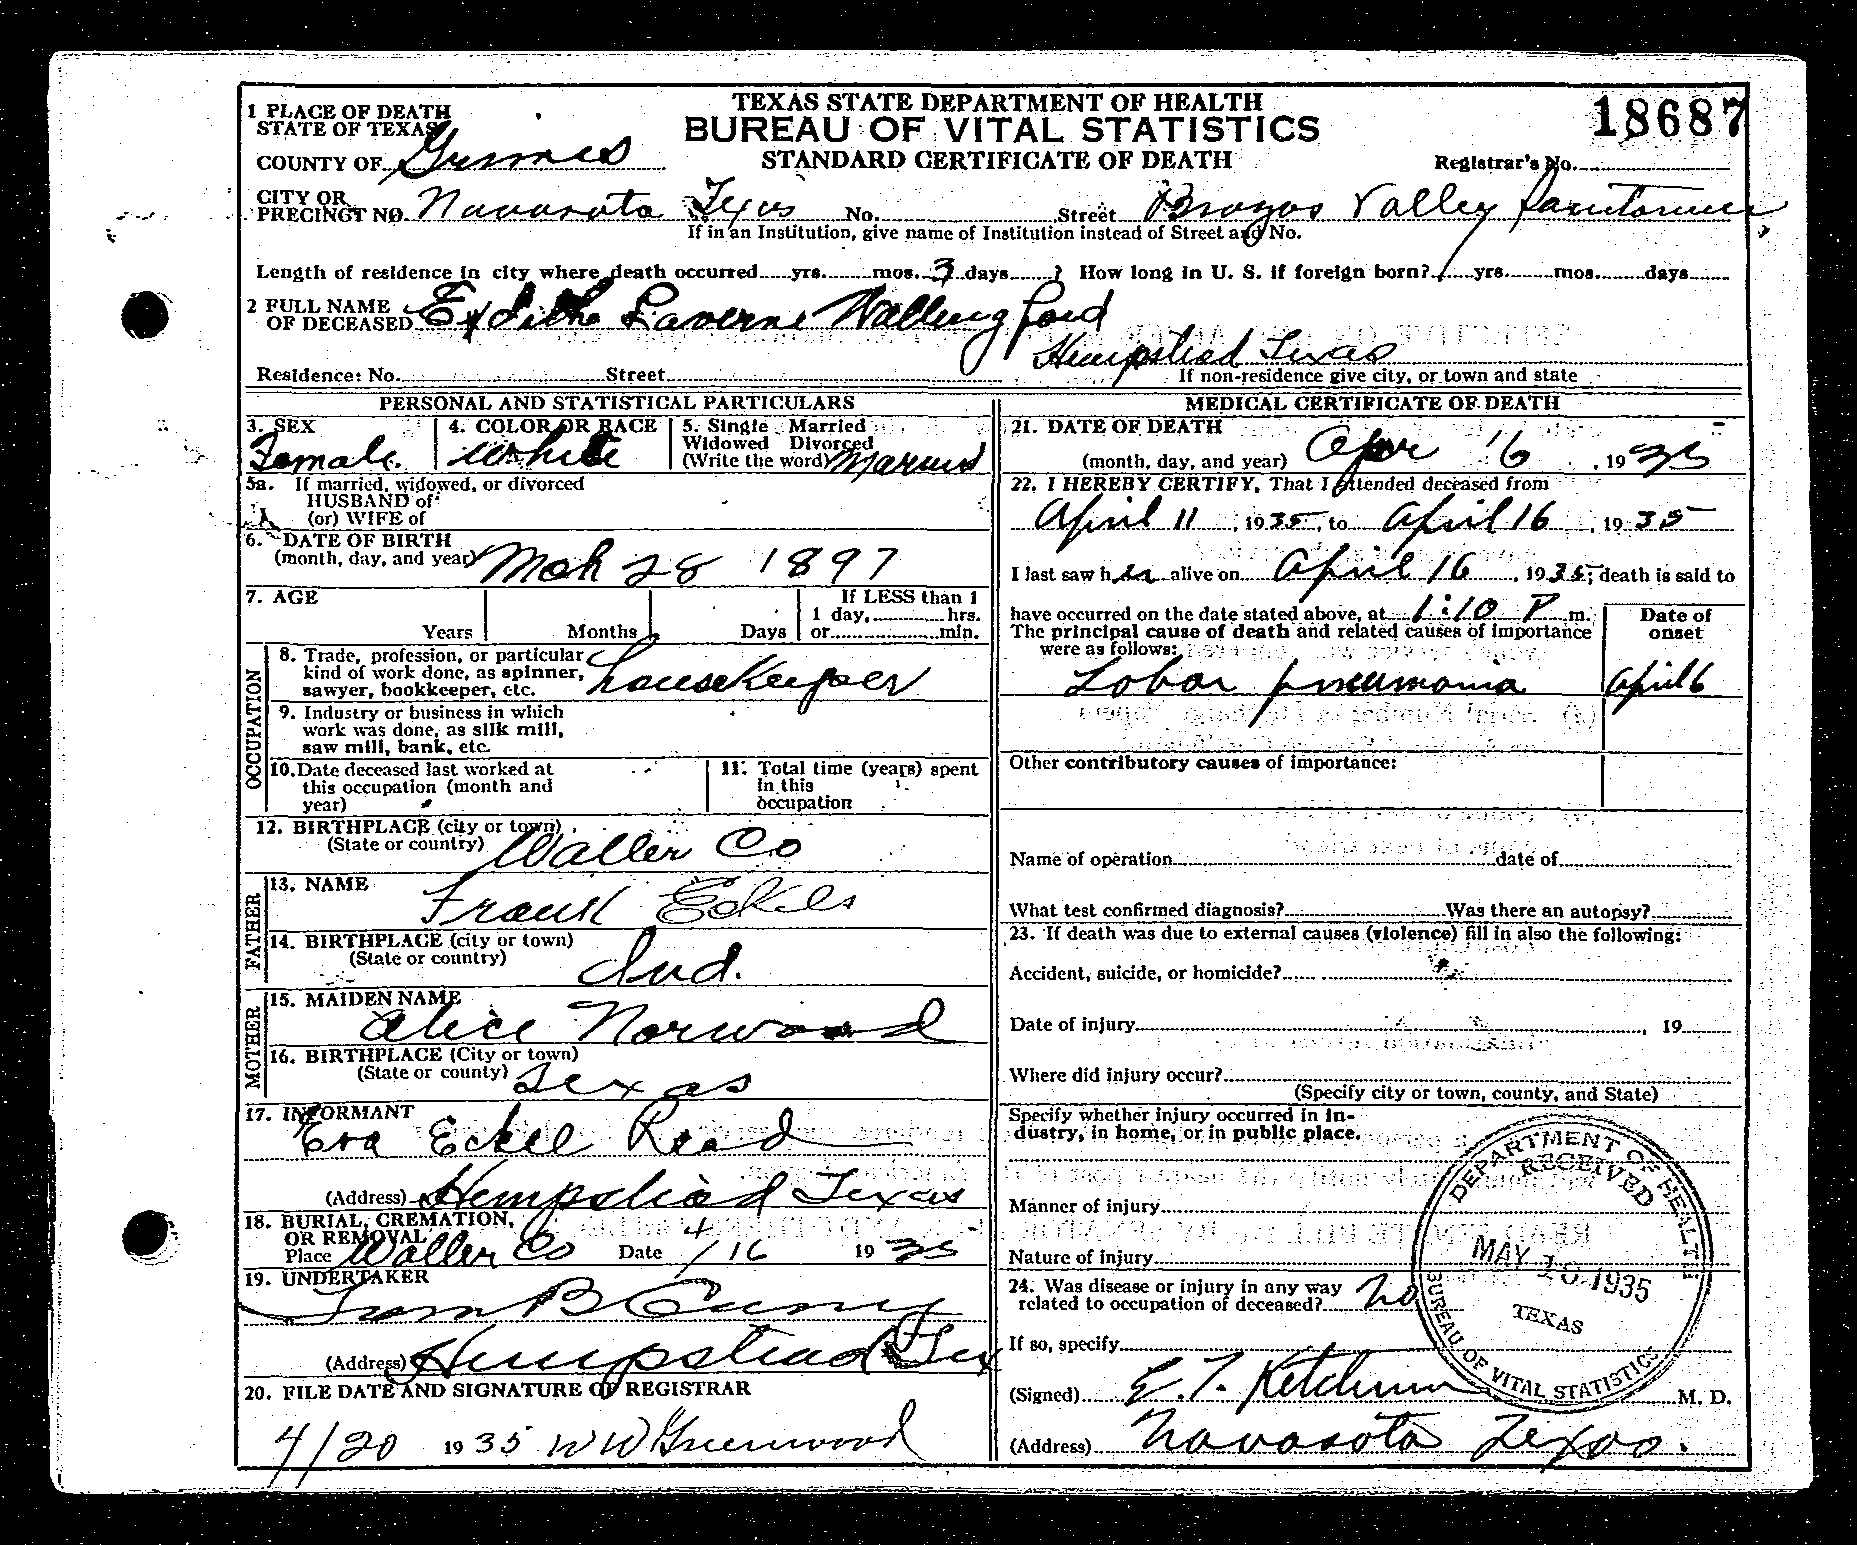 TEXAS STATE DEPARTMENT OF HEALTH
BUREAU OF VITAL STATISTICS
STANDARD CERTIFICATE OF DEATH
18687
Registrar's No.
1 PLACE OF DEATH
STATE OF TEXAS
COUNTY OF Grimes
CITY OR
PRECINCT NO. Navasota Texas No. Street Brazos Valley Sanitarium
If in an Institution, give name of Institution instead of Street and No.
Length of residence in city where death occurred yrs. mos. 3 days ? How long in U. S. if foreign born? yrs. mos. days
2 FULL NAME
OF DECEASED Edithe Laverne Wallingford
Hempstead Texas
Residence: No. Street
If non-residence give city, or town and state
PERSONAL AND STATISTICAL PARTICULARS
3. SEX
Female
4. COLOR OR RACE
White
5. Single Married
Widowed Divorced
(Write the word) Married
5a. If married, widowed, or divorced
HUSBAND of
(or) WIFE of
6. DATE OF BIRTH
(month, day, and year) Mch 28 1897
7. AGE
Years Months Days
If LESS than 1
1 day, hrs.
or min.
OCCUPATION
8. Trade, profession, or particular
kind of work done, as spinner,
sawyer, bookkeeper, etc. housekeeper
9. Industry or business in which
work was done, as silk mill,
saw mill, bank, etc.
10. Date deceased last worked at
this occupation (month and
year)
11. Total time (years) spent
in this
occupation
12. BIRTHPLACE (city or town)
(State or country) Waller Co
FATHER
13. NAME
Frank Eckels
14. BIRTHPLACE (city or town)
(State or country) Ind.
MOTHER
15. MAIDEN NAME
Alice Norwood
16. BIRTHPLACE (City or town)
(State or county) Texas
17. INFORMANT
Eva Eckel Read
(Address) Hempstead Texas
18. BURIAL, CREMATION,
OR REMOVAL
Place Waller Co Date 4/16 1935
19. UNDERTAKER
(Address) Hempstead Tex
20. FILE DATE AND SIGNATURE OF REGISTRAR
4/20 1935 W W Greenwood
MEDICAL CERTIFICATE OF DEATH
21. DATE OF DEATH
(month, day, and year) Apr 16, 1935
22. I HEREBY CERTIFY, That I attended deceased from
April 11, 1935, to April 16, 1935
I last saw her alive on April 16, 1935; death is said to
have occurred on the date stated above, at 1:10 P m.
The principal cause of death and related causes of importance
were as follows:
Date of
onset
Lobar pneumonia April 6
Other contributory causes of importance:
Name of operation date of
What test confirmed diagnosis? Was there an autopsy?
23. If death was due to external causes (violence) fill in also the following:
Accident, suicide, or homicide?
Date of injury , 19
Where did injury occur?
(Specify city or town, county, and State)
Specify whether injury occurred in in-
dustry, in home, or in public place.
Manner of injury
Nature of injury
24. Was disease or injury in any way
related to occupation of deceased? No
If so, specify
(Signed) E. T. Ketchum M. D.
(Address) Navasota Texas.
DEPARTMENT OF HEALTH
RECEIVED
MAY 10 1935
TEXAS
BUREAU OF VITAL STATISTICS